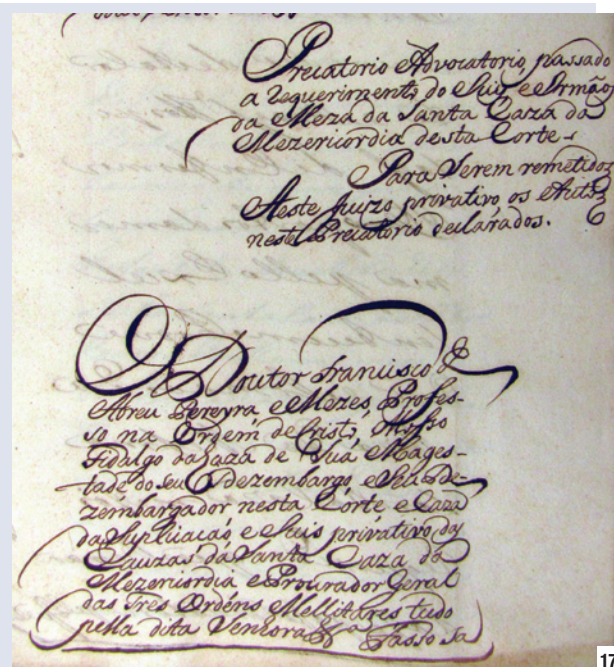 Precatorio e Avocatorio, passado
a Requerimento do Juiz e Irmãos
da Meza da Santa Caza da
Mezericordia desta Corte.
Para Serem remetidos
Aeste Juizo privativo, os Autos
neste Precatorio declarados.
O Doutor Francisco de
Abreu Pereyra, e Mezes, Profes-
so na Ordem de Cristo, Mosso
Fidalgo da Caza de Sua Mages-
tade do seu Dezembargo, e Seu De-
zembargador nesta Corte e Caza
da Suplicacaó e Juis privativo da
Cauzas da Santa Caza da
Mezericordia e Procurador Geral
das Tres Ordéns Mellitares tudo
pella dita Senhora &ª Fasso Sa
17